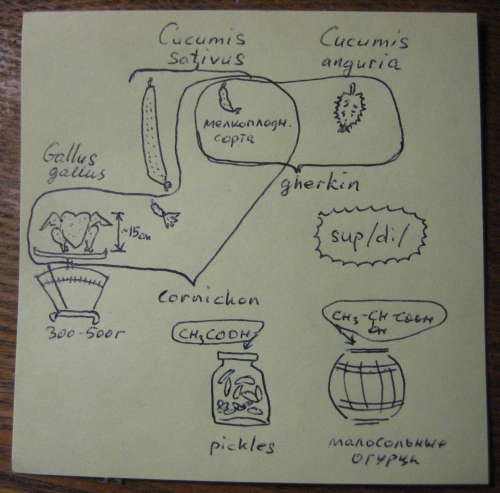 Cucumis
sativus
Cucumis
anguria
мелкоплодн.
сорта
Gallus
gallus
gherkin
~15cm
sup/di/
cornichon
300-500г
CH₃COOH
CH₃-CH-COOH
OH
pickles
малосольные
огурцы